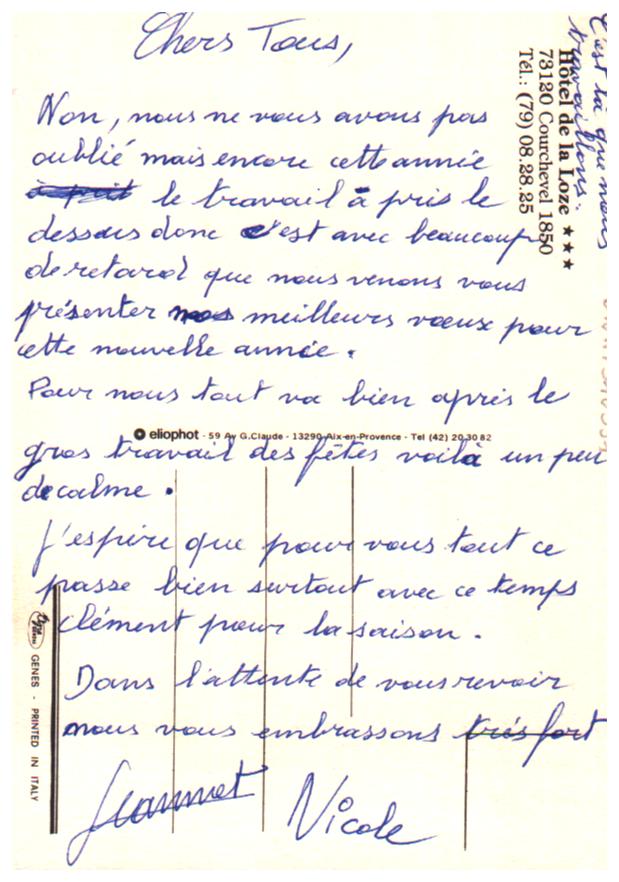 Chers Tous,
Non, nous ne vous avons pas
oublié mais encore cette année
le travail à pris le
dessus donc c'est avec beaucoup
de retard que nous venons vous
présenter nos meilleurs voeux pour
cette nouvelle année.
Pour nous tout va bien après le
gros travail des fêtes voilà un peu
de calme.
J'espère que pour vous tout ce
passe bien surtout avec ce temps
clément pour la saison.
Dans l'attente de vous revoir
nous vous embrassons très fort
Jeannet Nicole
C'est là que nous
travaillons.
Hôtel de la Loze ★★★
73120 Courchevel 1850
Tél.: (79) 08.28.25
eliophot - 59 Av G.Claude - 13290 Aix-en-Provence - Tel (42) 20 30 82
GENES - PRINTED IN ITALY